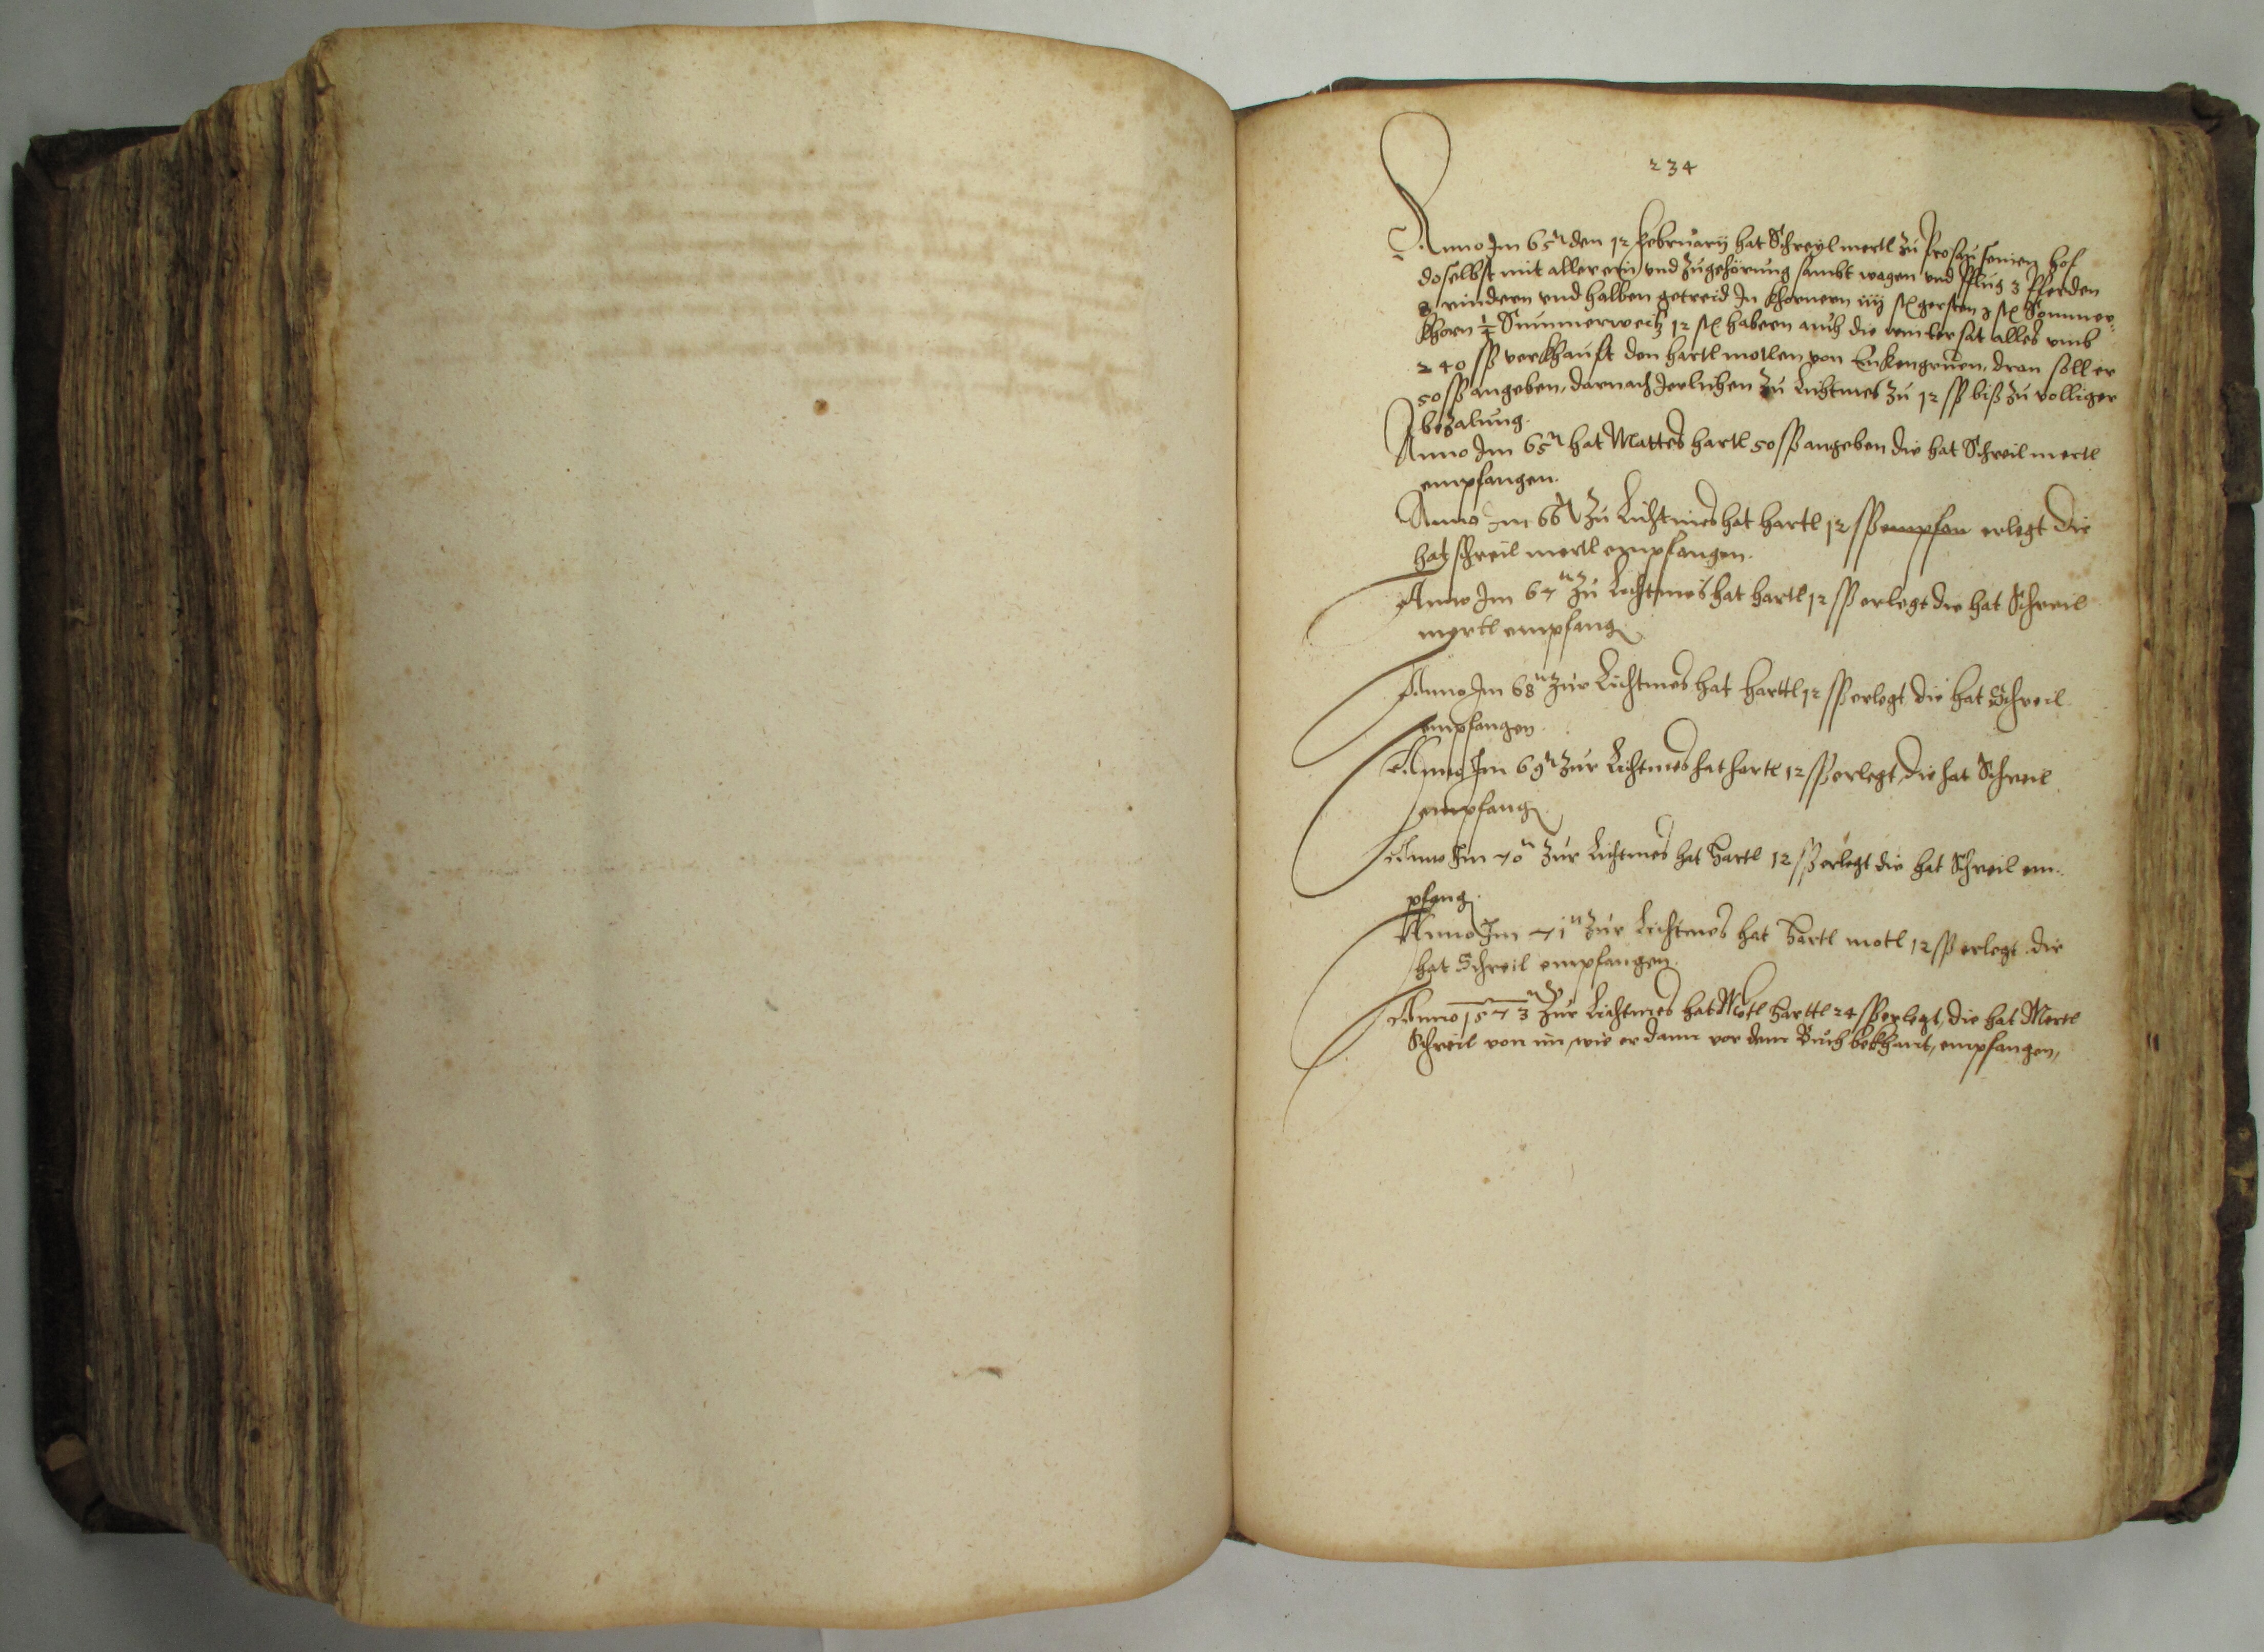 234
Anno Im 65ᵗⁿ den 12 february hat Schreyl mertl zu seinen hof
doselbst mit aller ein vnd zugehörung sambt wagen vnd pflug 3 pferden
8 rindern vnd halben getreid In khornern iiij gersten 3 Sommer-
khorn ¼ Summerweitz 12 habern auch die wintersat alles vmb
240 ß verkhauft den hartl motlen von Enkengruen, dran soll er
50 ß angeben, darnach Jerlichen zu Lichtmes zu 12 ß biß zu volliger
bezalung.
Anno Im 65ⁿ hat Mattes hartl 50 ß angeben die hat Schreil mertl
empfangen.
Anno Im 66ⁿ zu Lichtmes hat hartl 12 ß empfan erlegt die
hat schreil mertl empfangen.
Anno Im 67ⁿ zu Lichtmes hat hartl 12 ß erlegt die hat Schreil
mertl empfang
Anno Im 68ⁿ zur Lichtmes hat harttl 12 ß erlegt, die hat Schreil
empfangen.
Anno Im 69ⁿ zur Lichtmes hat hartl 12 ß erlegt, die hat Schreil
empfang
Anno Im 70ⁿ zur Lichtmes hat Hartl 12 ß erlegt die hat Schreil em-
pfang.
Anno Im 71ⁿ zur Lichtmes hat Hartl motl 12 ß erlegt die
hat Schreil empfangen.
Anno 1573 zur Lichtmes hat Motl Harttl 24 ß erlegt, die hat Mertl
Schreil von im, wie er dann vor dem Buch bekhant, empfangen,